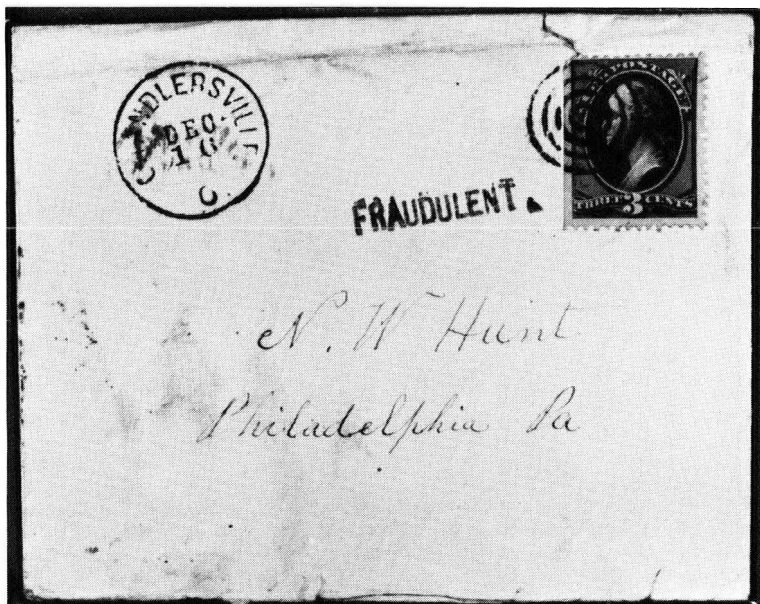 CHANDLERSVILLE
DEC.
O
POSTAGE
THREE 3 CENTS
FRAUDULENT
N. W Hunt
Philadelphia Pa